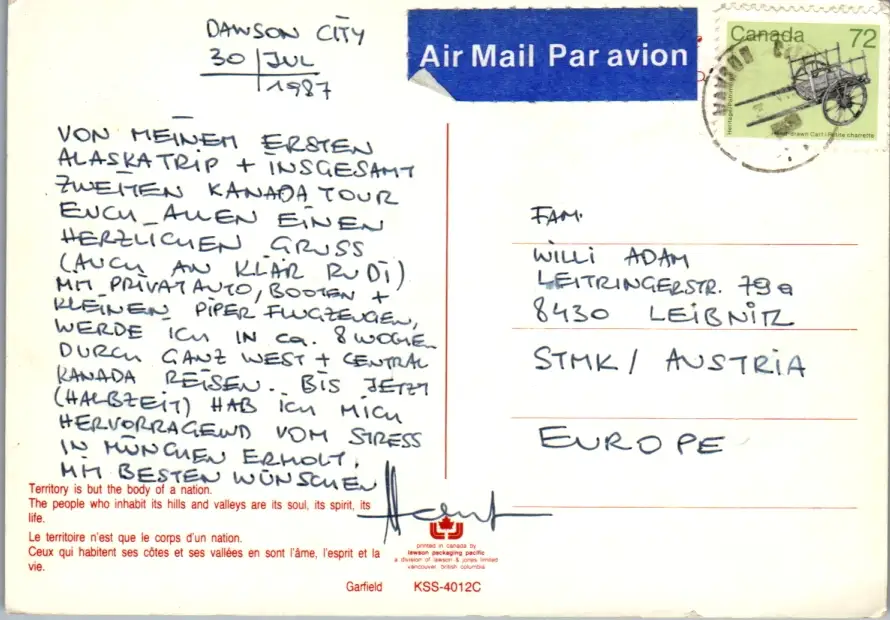 DAWSON CITY
30 | JUL
1987
Air Mail Par avion
Canada 72
VON MEINEM ERSTEN
ALASKATRIP + INSGESAMT
ZWEITEN KANADA TOUR
EUCH ALLEN EINEN
HERZLICHEN GRUSS
(AUCH AN KLÄR RUDI)
MIT PRIVATAUTO, BOOTEN +
KLEINEN PIPER FLUGZEUGEN,
WERDE ICH IN ca. 8 WOCHEN
DURCH GANZ WEST + CENTRAL
KANADA REISEN. BIS JETZT
(HALBZEIT) HAB ICH MICH
HERVORRAGEND VOM STRESS
IN MÜNCHEN ERHOLT.
MIT BESTEN WÜNSCHEN
FAM.
WILLI ADAM
LEITRINGERSTR. 79a
8430 LEIBNITZ
STMK / AUSTRIA
EUROPE
Territory is but the body of a nation.
The people who inhabit its hills and valleys are its soul, its spirit, its
life.
Le territoire n'est que le corps d'un nation.
Ceux qui habitent ses côtes et ses vallées en sont l'âme, l'esprit et la
vie.
printed in canada by
lawson packaging pacific
a division of lawson & jones limited
vancouver british columbia
Garfield KSS-4012C